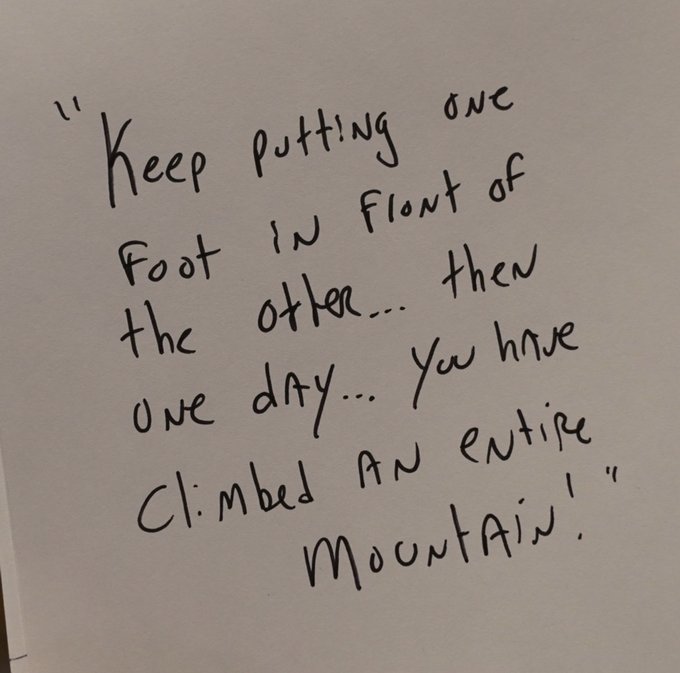 "Keep putting one
foot in front of
the other... then
one day... you have
climbed an entire
mountain!"